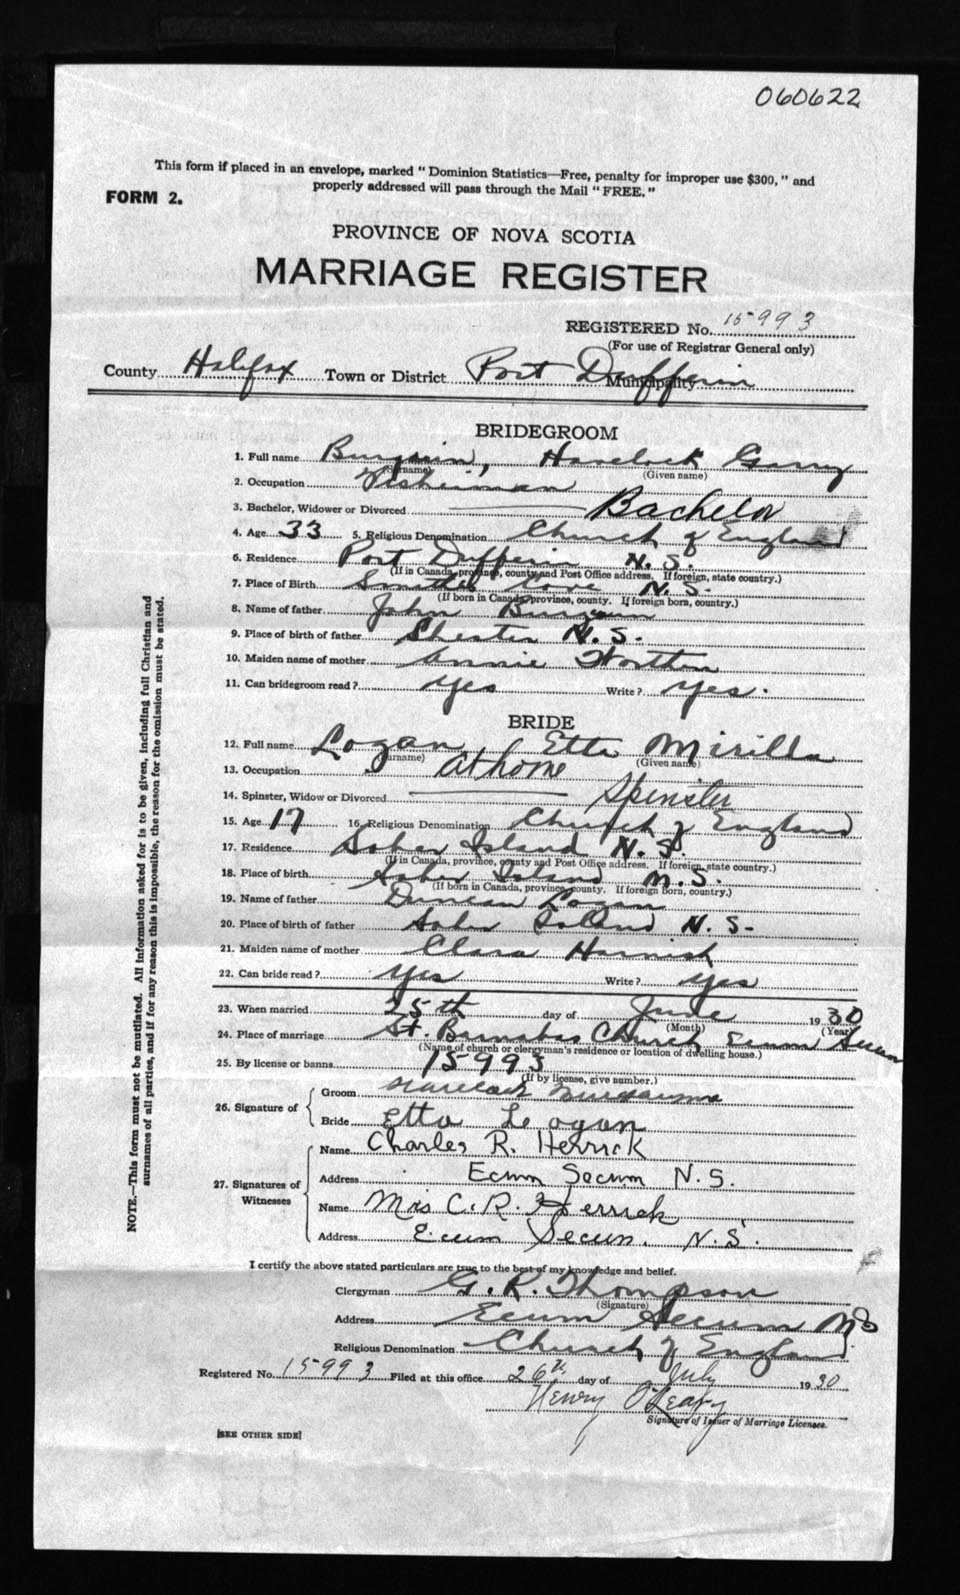 060622
This form if placed in an envelope, marked “ Dominion Statistics—Free, penalty for improper use $300, ” and
properly addressed will pass through the Mail “ FREE. ”
FORM 2.
PROVINCE OF NOVA SCOTIA
MARRIAGE REGISTER
REGISTERED No. 15993
(For use of Registrar General only)
County Halifax Town or District Port Dufferin
Municipality
BRIDEGROOM
1. Full name Havelock
(Surname) (Given name)
2. Occupation Fisherman
3. Bachelor, Widower or Divorced Bachelor
4. Age 33 5. Religious Denomination Church of England
6. Residence Port Dufferin N. S.
(If in Canada, province, county and Post Office address. If foreign, state country.)
7. Place of Birth Smiths Cove N. S.
(If born in Canada, province, county. If foreign born, country.)
8. Name of father John
9. Place of birth of father Chester N. S.
10. Maiden name of mother Annie
11. Can bridegroom read ? yes Write ? yes.
BRIDE
12. Full name Logan Etta Mirilla
(Surname) (Given name)
13. Occupation at home
14. Spinster, Widow or Divorced Spinster
15. Age 17 16. Religious Denomination Church of England
17. Residence Island N. S.
(If in Canada, province, county and Post Office address. If foreign, state country.)
18. Place of birth Island N. S.
(If born in Canada, province, county. If foreign born, country.)
19. Name of father Duncan Logan
20. Place of birth of father Island N. S.
21. Maiden name of mother Clara Harnish
22. Can bride read ? yes Write ? yes
23. When married 25th day of June 1930
(Month) (Year)
24. Place of marriage St. Barnabas Church Ecum Secum
(Name of church or clergyman's residence or location of dwelling house.)
25. By license or banns 15993
(If by license, give number.)
26. Signature of
Groom Havelock
Bride Etta Logan
27. Signatures of Witnesses
Name Charles R. Herrick
Address Ecum Secum N. S.
Name Mrs C. R. Herrick
Address Ecum Secum. N. S.
I certify the above stated particulars are true to the best of my knowledge and belief.
Clergyman G. R. Thompson
(Signature)
Address Ecum Secum NS
Religious Denomination Church of England
Registered No. 15993 Filed at this office 26th day of July 1930
Henry O'Leary
Signature of Issuer of Marriage Licenses.
[SEE OTHER SIDE]
NOTE.—This form must not be mutilated. All information asked for is to be given, including full Christian and
surnames of all parties, and if for any reason this is impossible, the reason for the omission must be stated.